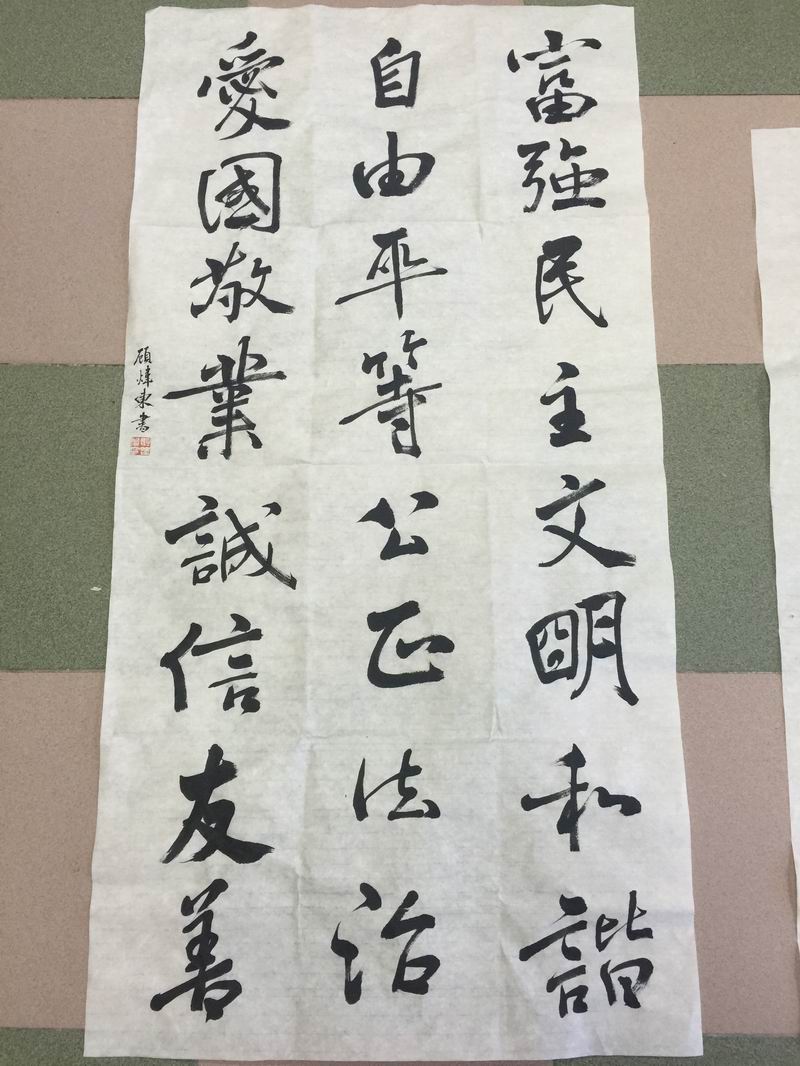 富強民主文明和諧
自由平等公正法治
愛國敬業誠信友善
顧煒東書